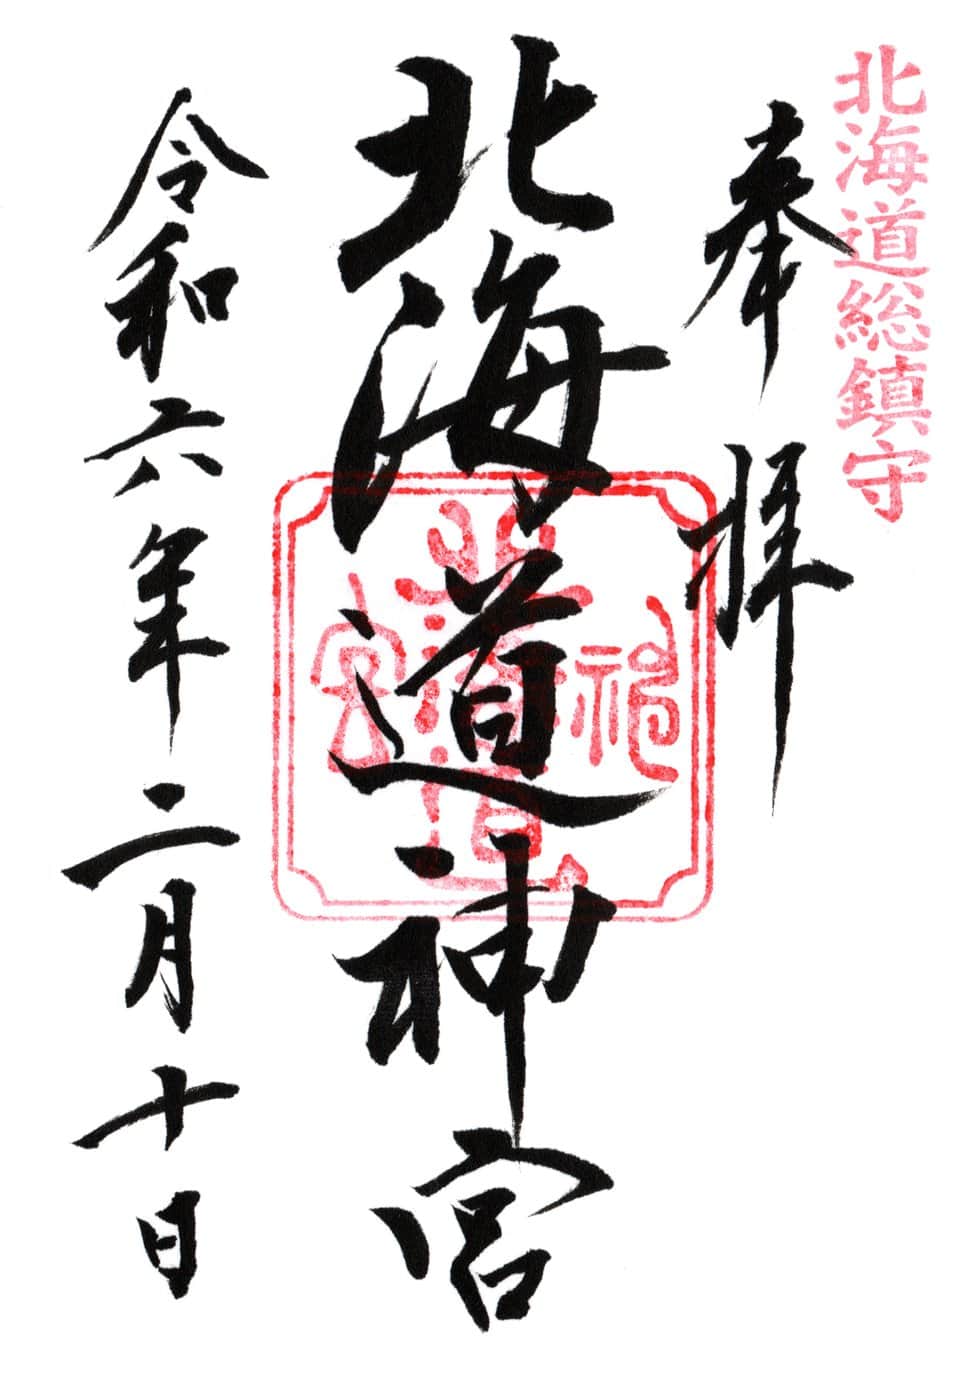 北海道総鎮守
奉拝
北海道神宮
北海道神宮
令和六年二月十日